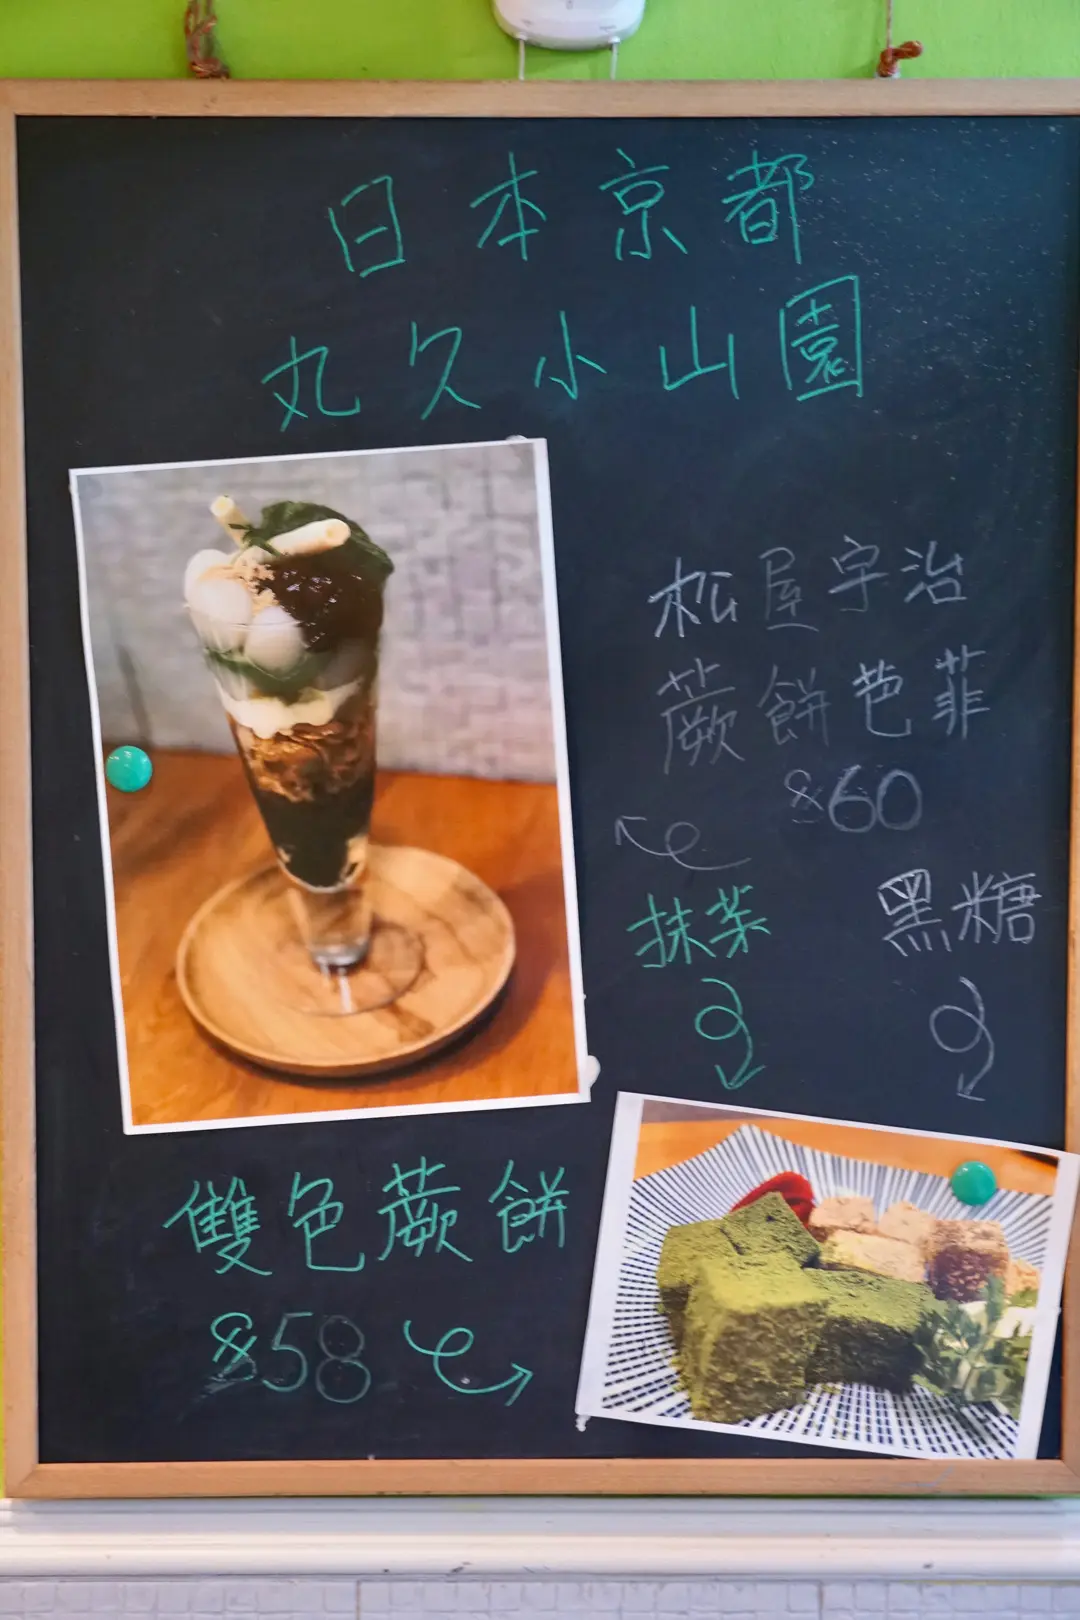 日本京都
丸久小山園
松屋宇治
蕨餅芭菲
$60
抹茶
黑糖
雙色蕨餅
$58